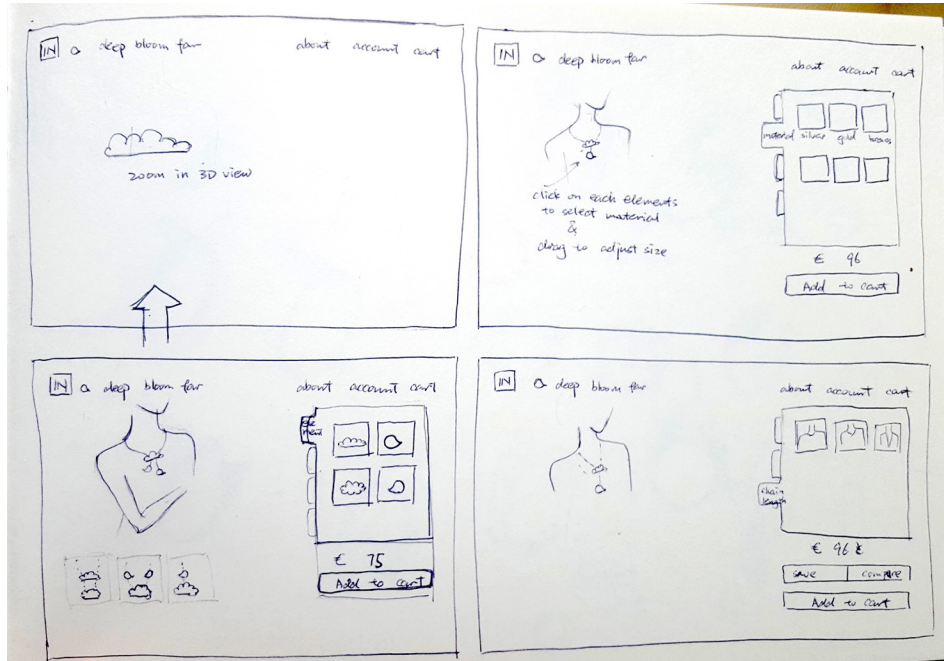 IN a deep bloom far about account cart
zoom in 3D view
IN a deep bloom far
about account cart
material silver gold
click on each elements
to select material
&
drag to adjust size
€ 96
Add to cart
IN a deep bloom far about account cart
€ 75
Add to cart
IN a deep bloom far
about account cart
chain
length
€ 96
save compare
Add to cart